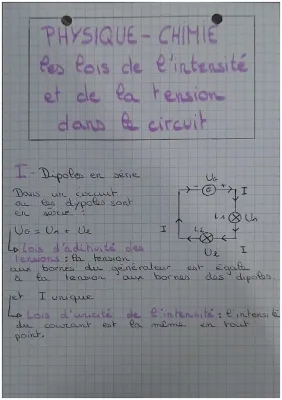 PHYSIQUE - CHIMIE
les lois de l'intensité
et de la tension
dans le circuit
I - Dipoles en série
Dans un circuit
où les dypoles sont
en série :
U0 = U1 + U2
↳ Lois d'aditivité des
tensions : la tension
aux bornes du générateur est égale
à la tension aux bornes des dipoles.
et I unique
↳ Lois d'unicité de l'intensité : l'intensité
du courant est la même en tout
point.
U0
- G +
I
L1
U1
I
L2
I
U2